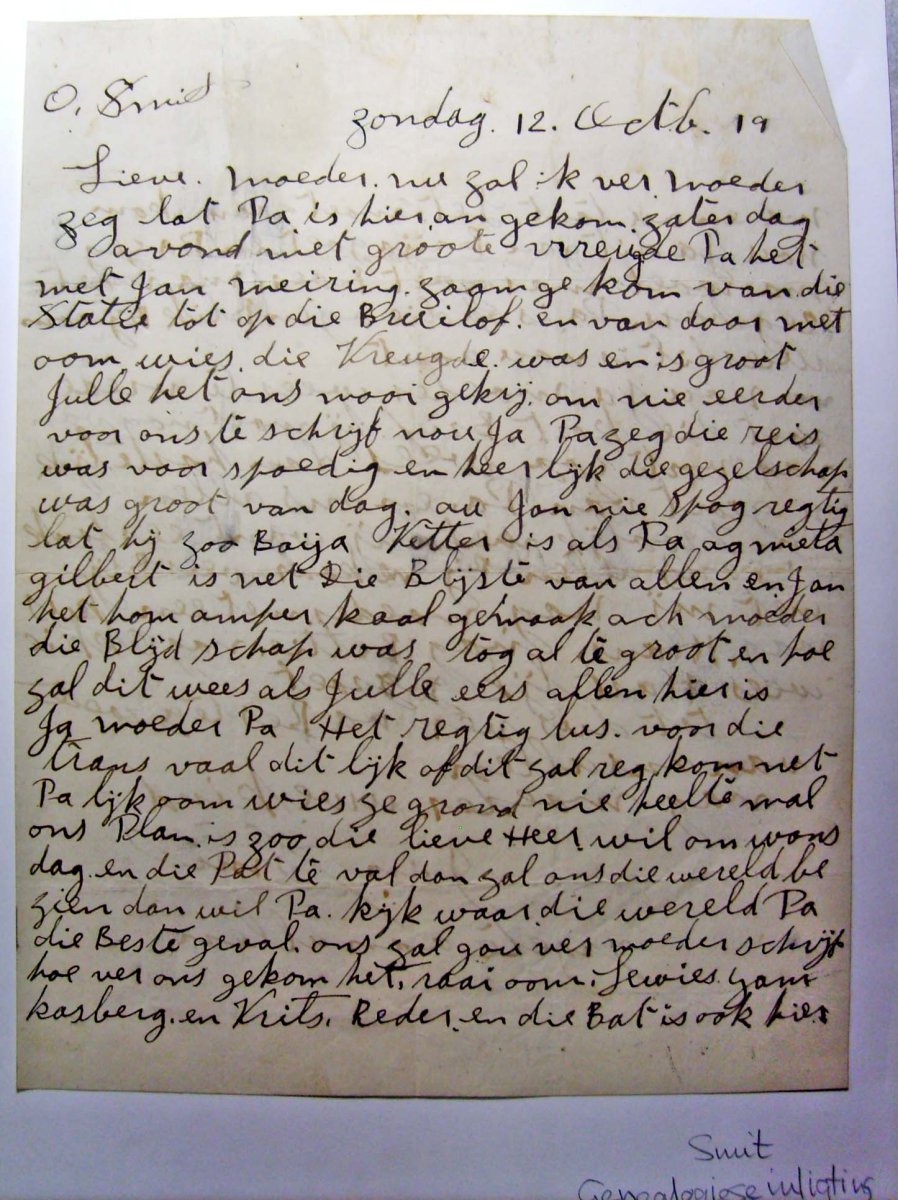 O. Smit
zondag. 12. Octb. 19
Lieve. moeder. nu zal ik ver moeder
zeg lat Pa is hier an gekom. zater dag
avond met groote vreugde Pa het
met Jan meiring. zaam ge kom van die
State tot op die Bruilof. en van daar met
oom wies. die Vreugde. was en is groot
Julle het ons mooi gekrij. om nie eerder
voor ons te schrijf nou Ja Pa zeg die reis
was voor spoedig en heer lijk die gezelschap
was groot van dag. ou Jan nie Spog regtig
lat hij zoo Baija Vetter is als Pa ag mieta
gilbert is net Die Blijste van allen en Jan
het hom amper kaal gemaak ach moeder
die Blijd schap was tog al te groot en hoe
zal dit wees als Julle eers allen hier is
Ja moeder Pa Het regtig lus. voor die
trans vaal dit lijk of dit zal reg kom net
Pa lijk oom wies ze grond nie heelte mal
ons Plan is zoo die lieve Heer wil om wons
dag en die Pat te val dan zal ons die wereld be
zien dan wil Pa. kijk waar die wereld Pa
die Beste geval. ons zal gou ver moeder schrijf
hoe ver ons gekom het. raai oom. Lewies
kasberg. en Frits. Reder. en die Bat is ook hier
Smit
Genealogiese inligting